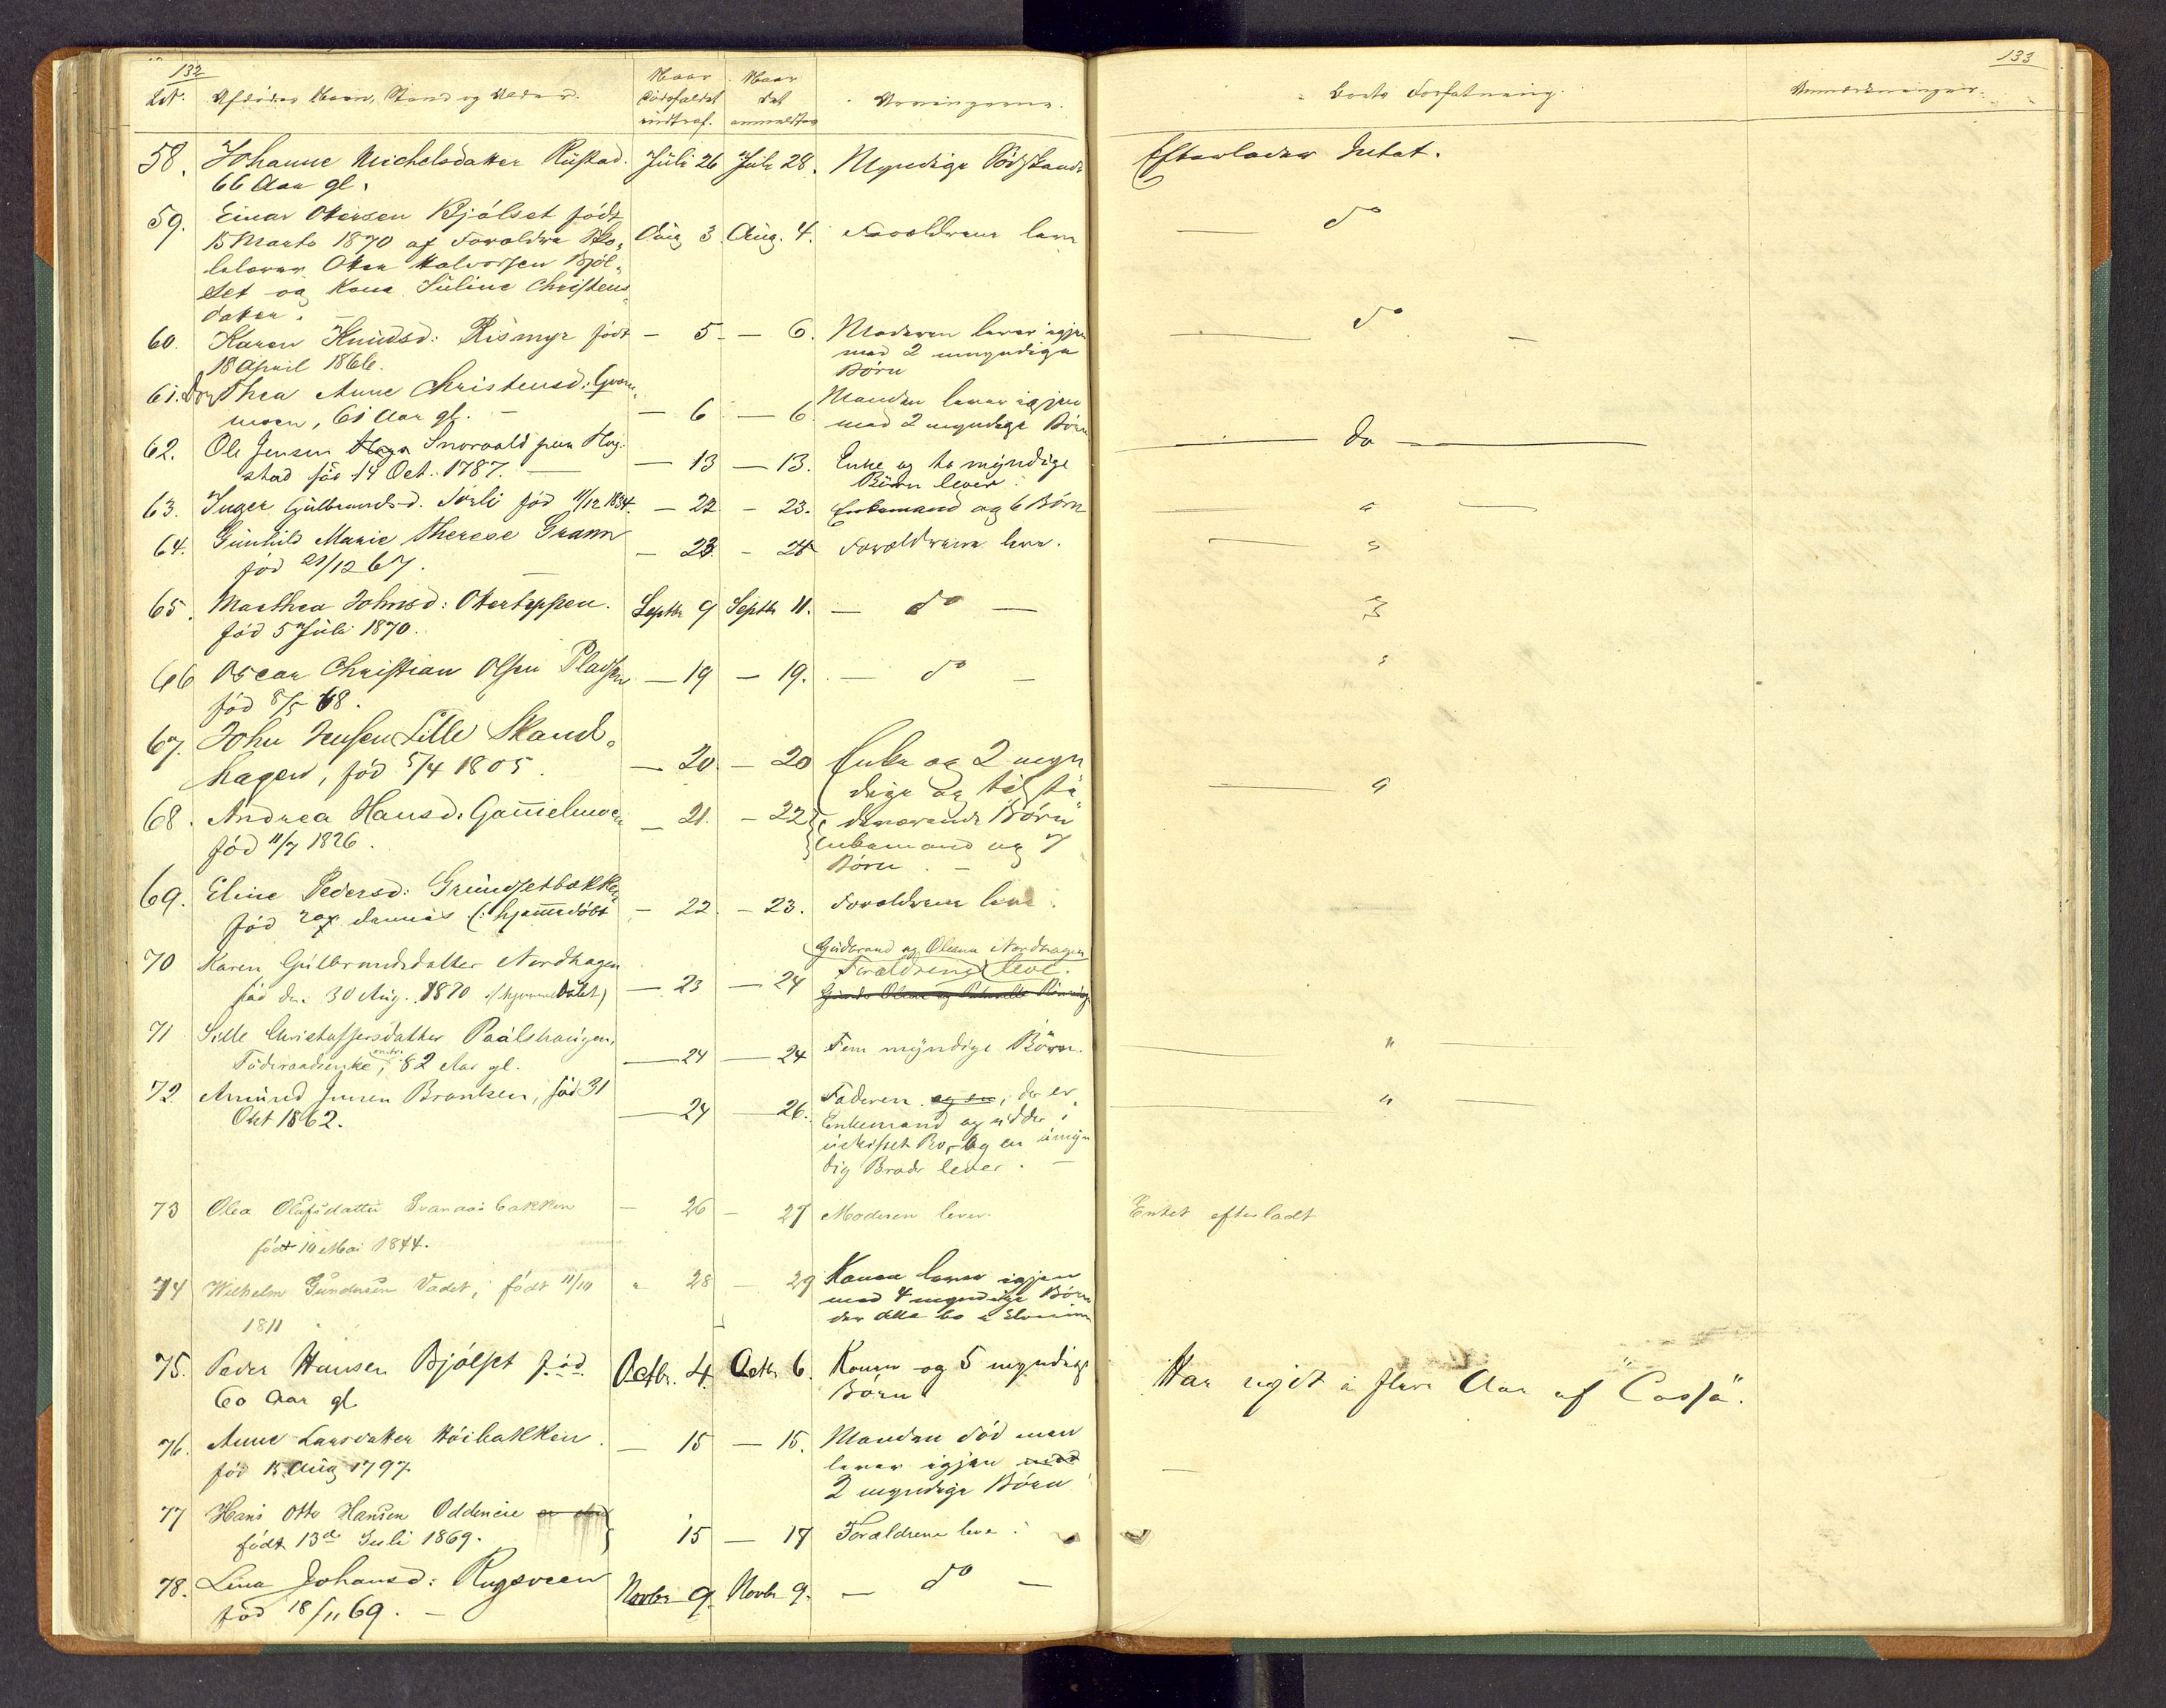 132
Lit. Afdødes Navn, Stand og Alder.
Naar Dødsfaldet indtraf.
Naar det anmeldtes
Arvingerne.
58. Johanne Michelsdatter Rustad. Juli 26 Juli 28. Myndige Sødskende
66 Aar gl.
59. Einar Otersen Bjølset født
15 Marts 1870 af Forældre Sko- Aug 3. Aug. 4. Forældrene leve
lelærer Oter Halvorsen Bjøl-
set og Kone Juline Christens
datter.
60. Karen Knudsd: Rismyr født — 5. — 6. Moderen lever igjen
18 April 1866. med 2 umyndige
Børn
61. Dorthea Anne Christensd: Gram- Manden lever igjen
moen, 61 Aar gl. — — 6 — 6 med 2 myndige Børn
62. Ole Jensen Snorvald paa Hog-
stad fød 14 Oct. 1787. — 13 — 13. Enke og to myndige
Börn lever.
63. Inger Gulbrandsd. Sørli fød 11/12 1834. — 22 — 23. Enkemand og 6 Børn
64. Gunhild Marie Therese Gram
fød 21/12 67. — 23. — 24 Forældrene leve.
65. Marthea Johnsd: Oterteppen. Septbr 9 Septbr 11. — do —
fød 5 Juli 1870.
66 Oscar Christian Olsen Pladsen — 19 — 19. — do —
fød 8/5 68.
67. John Jensen Lille Skand-
hagen, fød 5/4 1805. — 20. — 20 Enke og 2 myn
dige og
68. Andrea Hansd: Gammelmoen — 21. — 22 deværende Børn
fød 11/7 1826. Enkemand og 7
Børn. —
69. Eline Pedersd: Grundsetbakken
fød (: hjemmedøbt — 22. — 23. Forældrene leve.
70 Karen Gulbrandsdatter Nordhagen Gudbrand og Oleana Nordhagen
Forældrene leve.
fød den 30 Aug. 1870 (hjemmedöbt) — 23 — 24
71 Sille Christoffersdatter Paalshaugen,
Föderaadsenke, 82 Aar gl. — 24 — 24 Fem myndige Börn.
72. Amund Jensen Branken, fød 31
Okt 1862. — 24 — 26. Faderen, der er
Enkemand og sidder i
uskiftet Bo, og en umyn
dig Broder lever. —
73 Olea Olufsdatter Svenaasbakken — 26 — 27 Moderen lever.
født 10 Mai 1844.
74 Wilhelm Gundersen Vadet, født 11/10 " 28 — 29 Konen lever igjen
1811 med 4 myndige Børn
der alle bo i Elverum
75. Peder Hansen Bjølset fød. Octbr. 4. Octbr 6. Konen og 5 myndige
60 Aar gl. Børn
76. Anne Larsdatter Høibakken. — 15 — 15. Manden død men
fød 15 Aug 1797. lever igjen med
2 myndige Børn
77 Hans Otto Hansen Oddeneie
født 13de Juli 1869. 15 — 17 Forældrene leve.
78. Lina Johansd: Rugsveen Novbr 9. Novbr 9. — do —
fød 18/11 69. —
133
Boets Forfatning.
Anmærkninger.
Efterlader Intet.
— do
— do —
— do —
— " —
— "
"
"
— "
— " —
— " —
Entet efterladt
Har nydt i flere Aar af "Cassa".
—